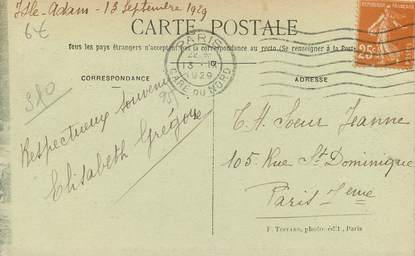 Isle-Adam - 13 Septembre 1929
6€
CARTE POSTALE
Tous les pays étrangers n'acceptent pas la correspondance au recto (Se renseigner à la Poste
CORRESPONDANCE
ADRESSE
PARIS
13 - IX
1929
GARE DU NORD
REPUBLIQUE FRANCAISE
25c
POSTES
380
Respectueux souvenir
Elisabeth Grégoire
T. H. Soeur Jeanne
105 Rue St Dominique
Paris 7eme
édit, Paris